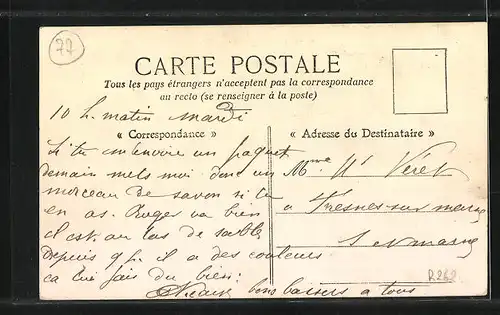 77
CARTE POSTALE
Tous les pays étrangers n'acceptent pas la correspondance
au recto (se renseigner à la poste)
10 h. matin mardi
« Correspondance »
« Adresse du Destinataire »
Si tu m'envoie un paquet
demain mets moi donc un
morceau de savon si tu
en as. Roger va bien
il est au tas de sable
depuis qu'il a des couleurs
ca lui fais du bien.
bons baisers a tous
Mme Véret
a Fresnes-sur-marne
S et marne
R262